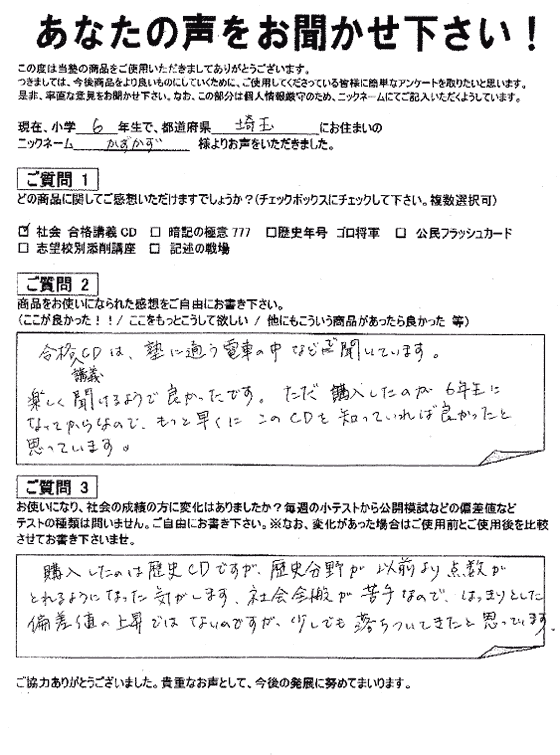 あなたの声をお聞かせ下さい！
この度は当塾の商品をご使用いただきましてありがとうございます。
つきましては、今後商品をより良いものにしていくために、ご使用してくださっている皆様に簡単なアンケートを取りたいと思います。
是非、率直な意見をお聞かせ下さい。なお、この部分は個人情報厳守のため、ニックネームにてご記入いただくようしています。
現在、小学 6 年生で、都道府県 埼玉 にお住まいの
ニックネーム かずかず 様よりお声をいただきました。
ご質問 1
どの商品に関してご感想いただけますでしょうか？(チェックボックスにチェックして下さい。複数選択可)
☑ 社会 合格講義CD □ 暗記の極意777 □歴史年号 ゴロ将軍 □ 公民フラッシュカード
□ 志望校別添削講座 □ 記述の戦場
ご質問 2
商品をお使いになられた感想をご自由にお書き下さい。
(ここが良かった！！/ ここをもっとこうして欲しい / 他にもこういう商品があったら良かった 等)
合格講義CDは、塾に通う電車の中などで聞いています。
楽しく聞けるようで良かったです。ただ購入したのが6年生に
なってからなので、もっと早くにこのCDを知っていれば良かったと
思っています。
ご質問 3
お使いになり、社会の成績の方に変化はありましたか？毎週の小テストから公開模試などの偏差値など
テストの種類は問いません。ご自由にお書き下さい。※なお、変化があった場合はご使用前とご使用後を比較
させてお書き下さいませ。
購入したのは歴史CDですが、歴史分野が以前より点数が
とれるようになった気がします。社会全般が苦手なので、はっきりとした
偏差値の上昇ではないのですが、少しでも落ちついてきたと思っています。
ご協力ありがとうございました。貴重なお声として、今後の発展に努めてまいります。